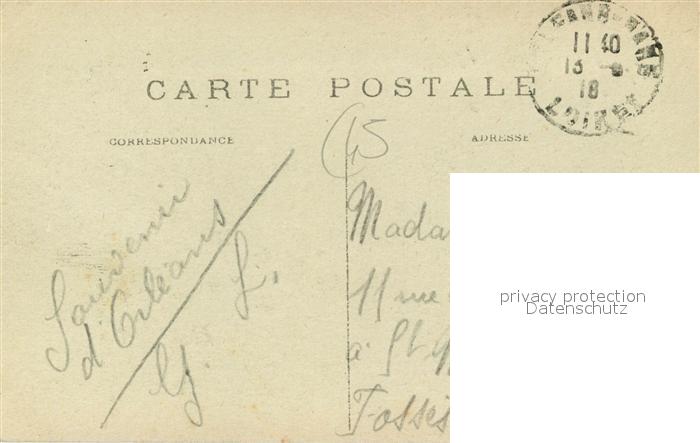 CARTE POSTALE
CORRESPONDANCE
ADRESSE
11 40
13
18
LOIRET
45
Souvenir
d'Orléans
L.
Mada
11 rue
à St
Fosses
privacy protection
Datenschutz